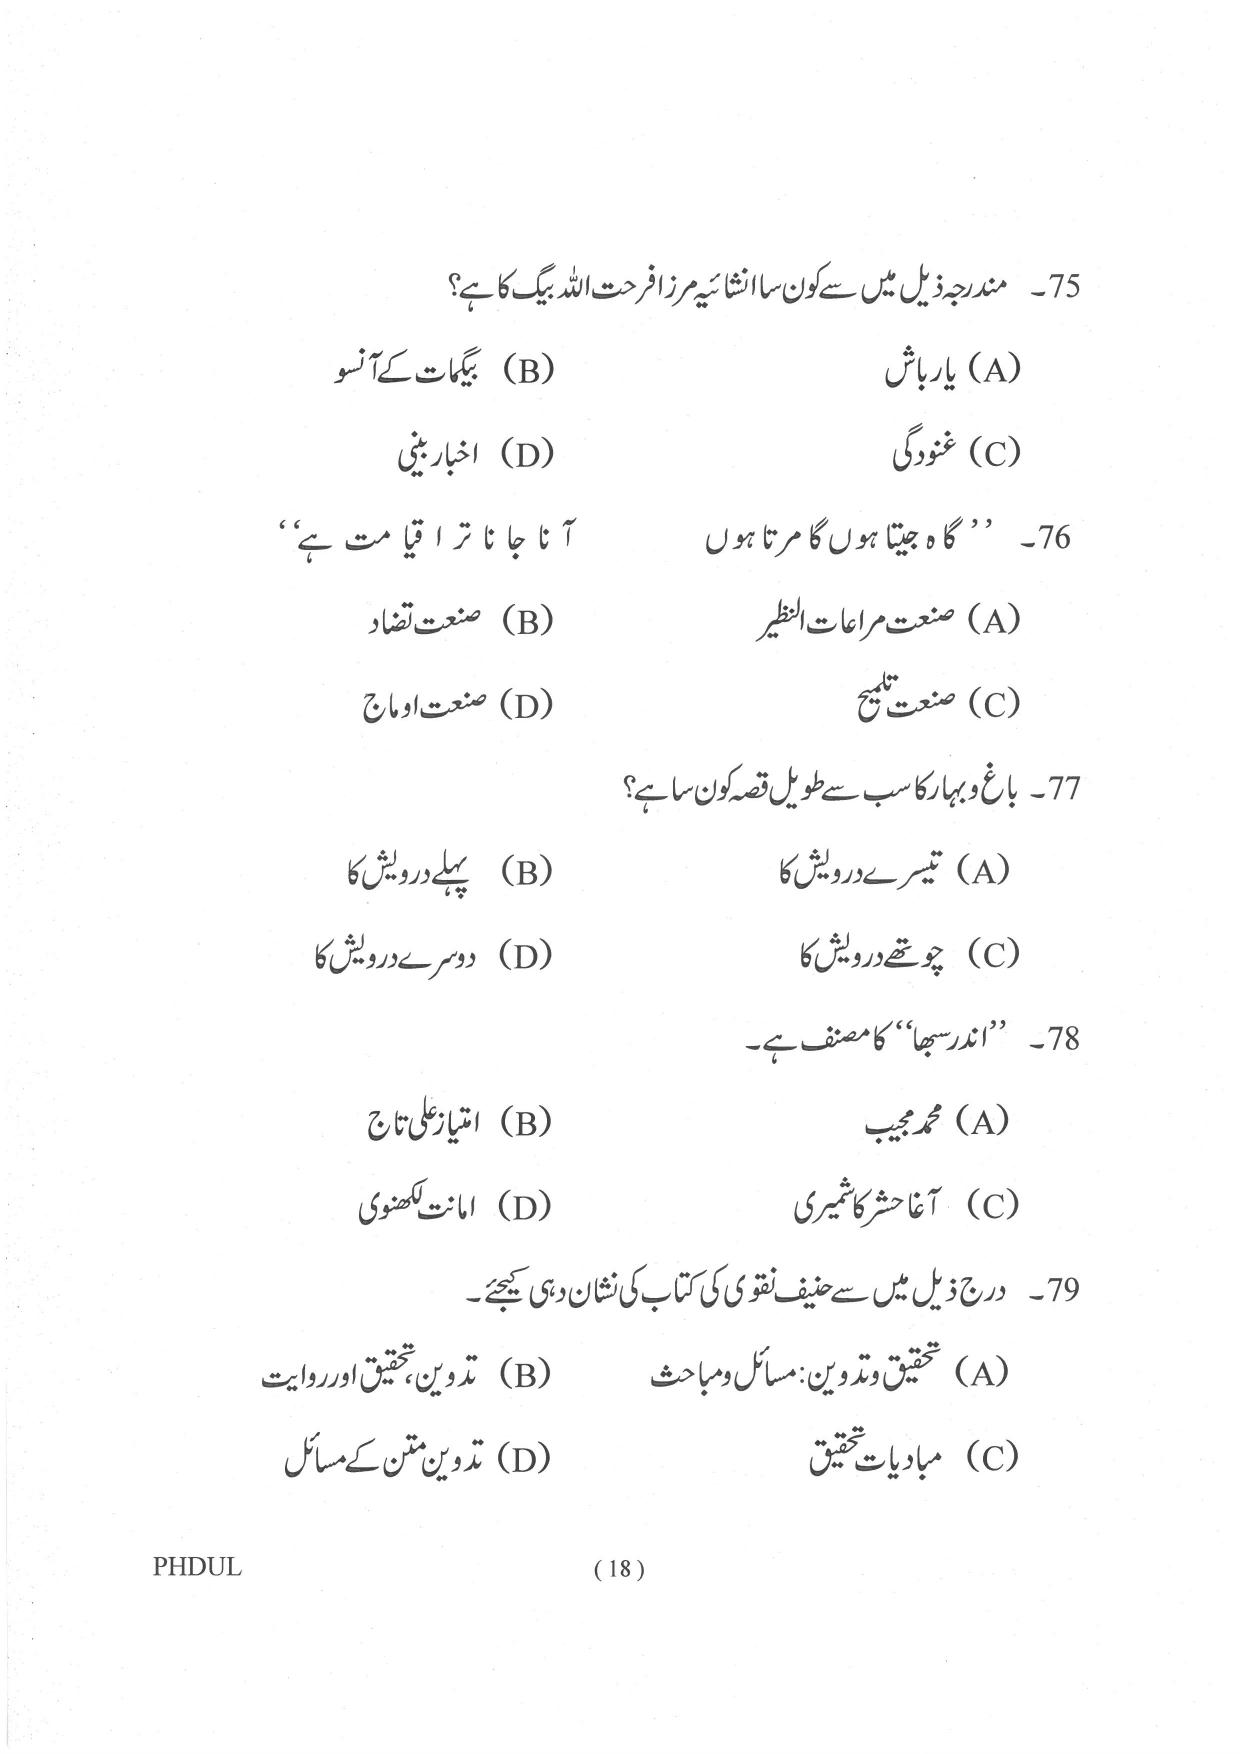 75۔ مندرجہ ذیل میں سے کون سا انشائیہ مرزا فرحت اللہ بیگ کا ہے؟
(A) یار باش (B) بیگمات کے آنسو
(C) غنودگی (D) اخبار بینی
76۔ ’’گاہ جیتا ہوں گا مرتا ہوں آنا جانا ترا قیامت ہے‘‘
(A) صنعت مراعات النظیر (B) صنعت تضاد
(C) صنعت تلمیح (D) صنعت اوماج
77۔ باغ و بہار کا سب سے طویل قصہ کون سا ہے؟
(A) تیسرے درویش کا (B) پہلے درویش کا
(C) چوتھے درویش کا (D) دوسرے درویش کا
78۔ ’’اندر سبھا‘‘ کا مصنف ہے۔
(A) محمد مجیب (B) امتیاز علی تاج
(C) آغا حشر کاشمیری (D) امانت لکھنوی
79۔ درج ذیل میں سے حنیف نقوی کی کتاب کی نشان دہی کیجئے۔
(A) تحقیق و تدوین: مسائل و مباحث (B) تدوین، تحقیق اور روایت
(C) مبادیات تحقیق (D) تدوین متن کے مسائل
PHDUL (18)